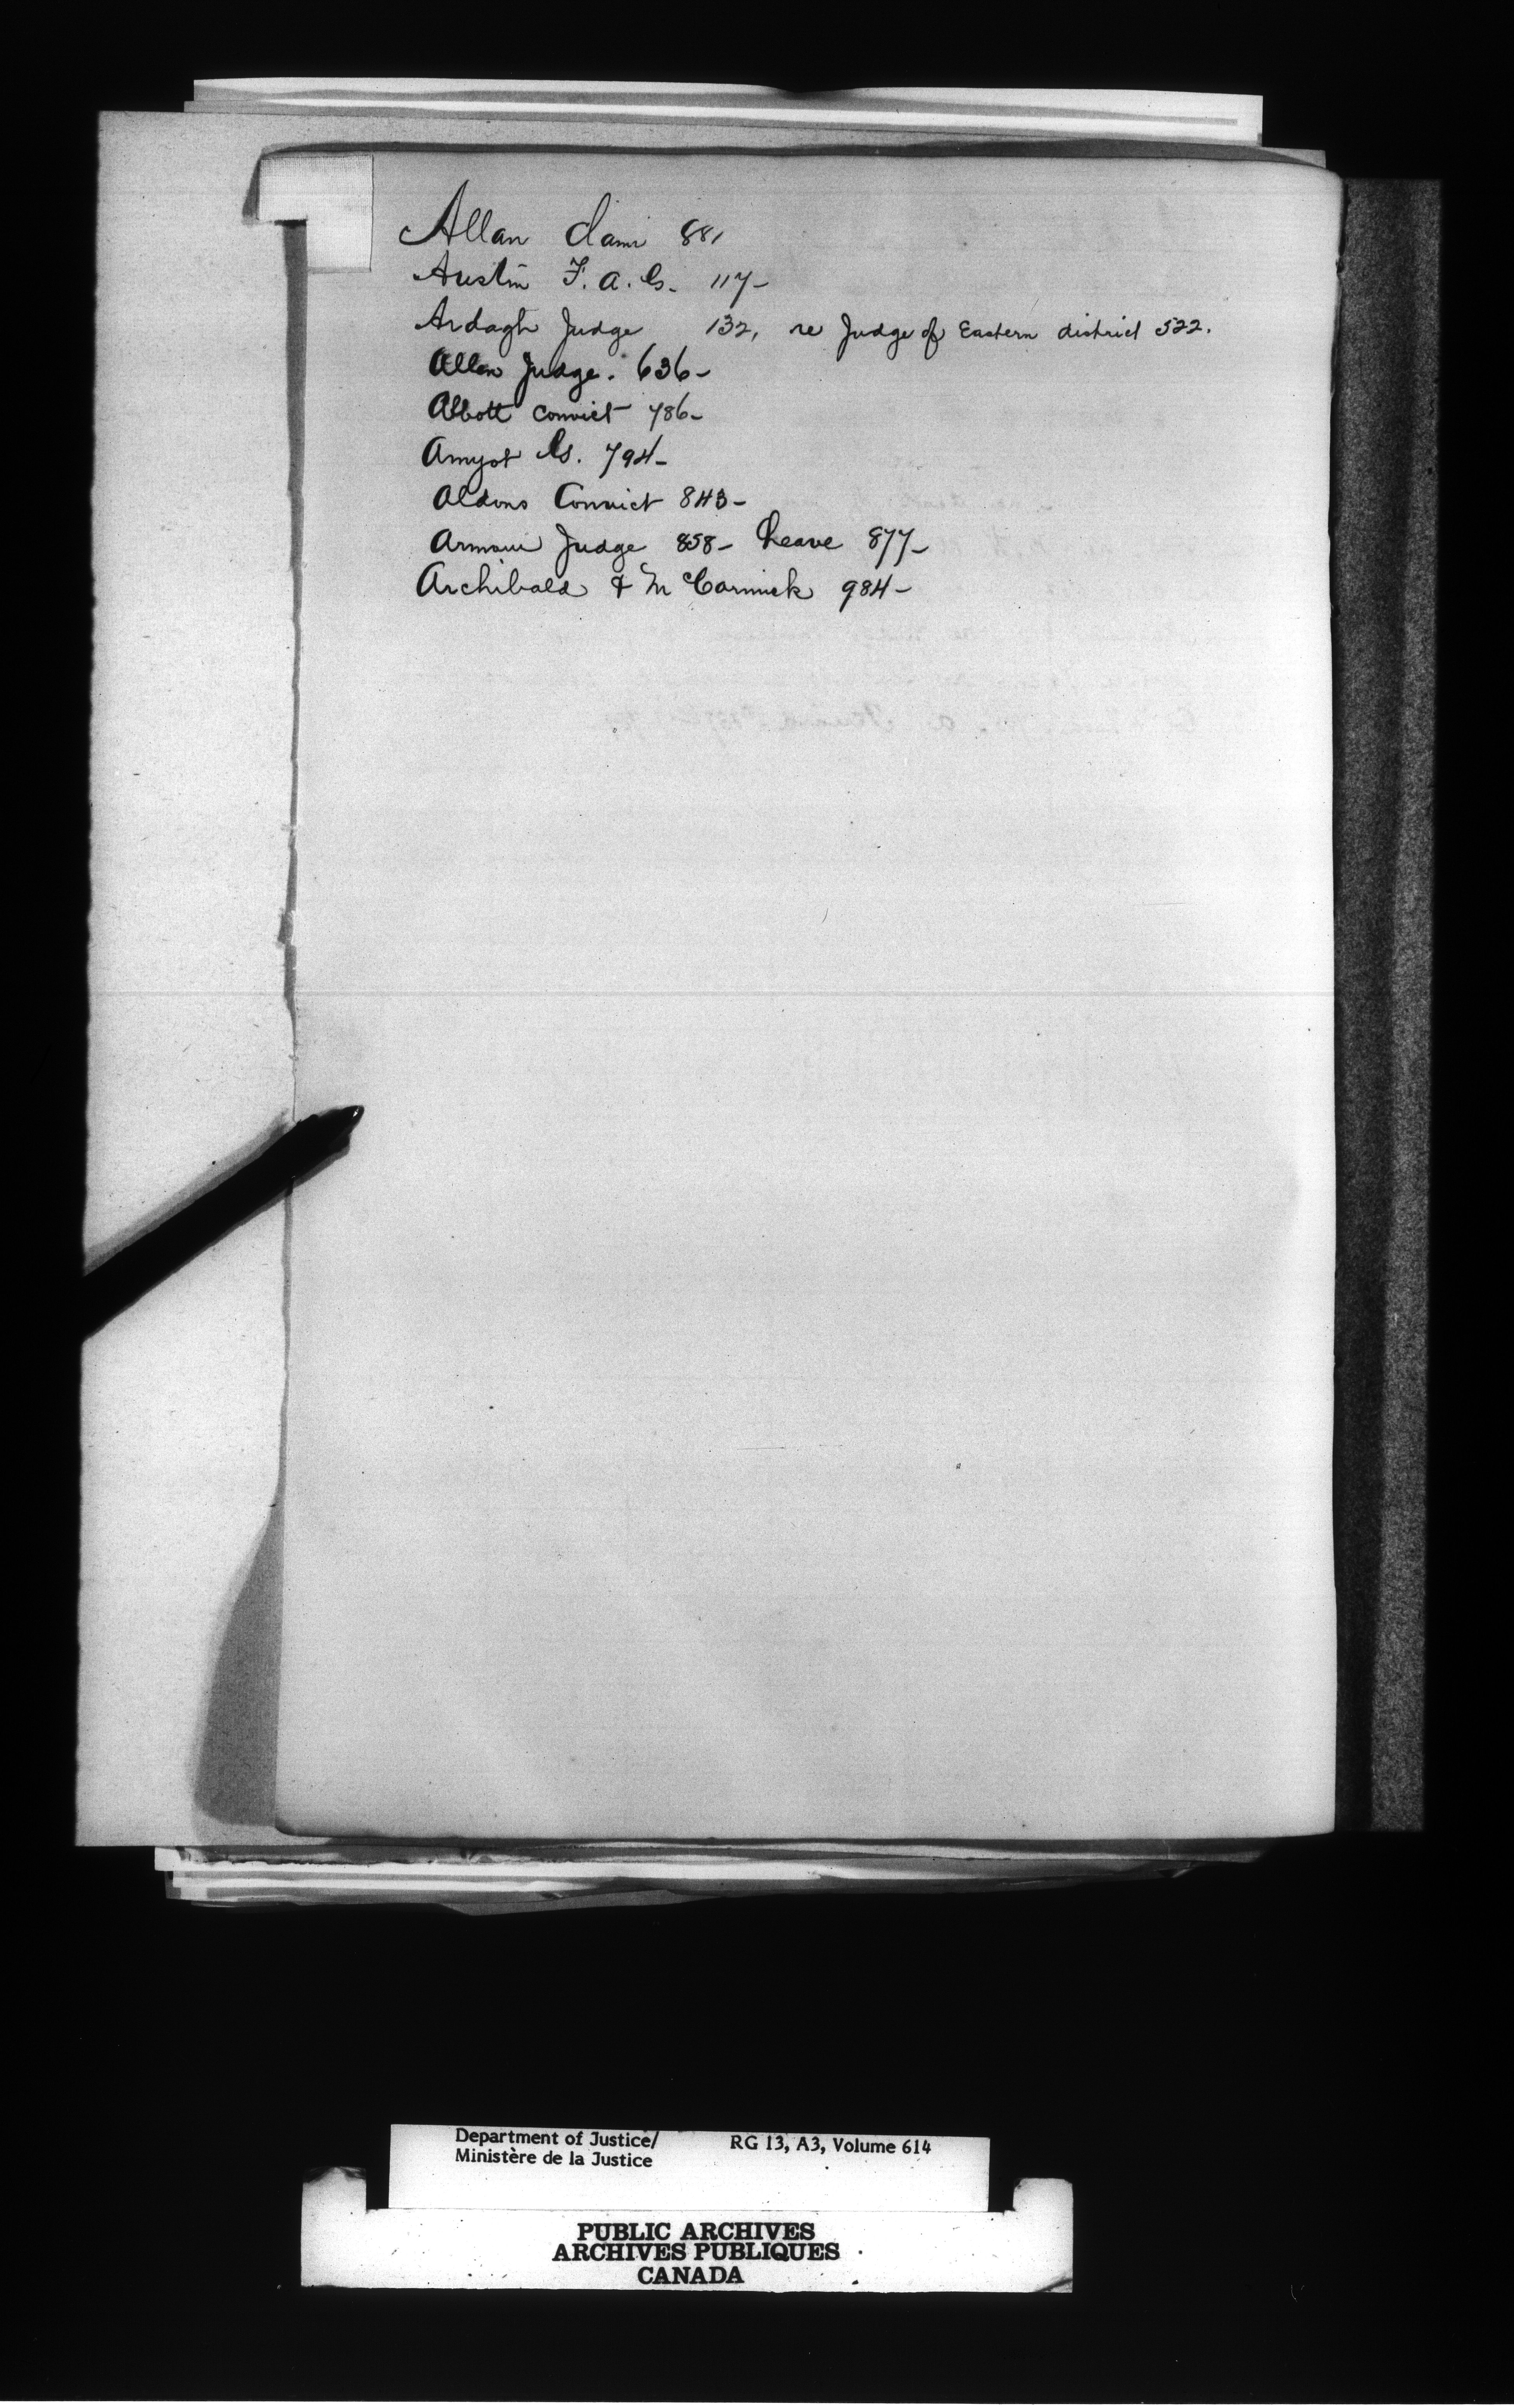 Allan claim 881
Austin F. A. G. 117-
Ardagh Judge 132, re Judge of Eastern district 522.
Allen Judge. 636-
Abbott convict 786-
Amyot G. 794-
Aldons Convict 843-
Armour Judge 858- Leave 877-
Archibald & McCormick 984-
Department of Justice/ RG 13, A3, Volume 614
Ministère de la Justice
PUBLIC ARCHIVES
ARCHIVES PUBLIQUES
CANADA